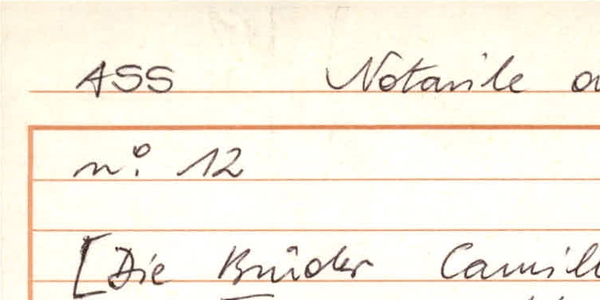 ASS Notarile
n.° 12
[Die Brüder Camill